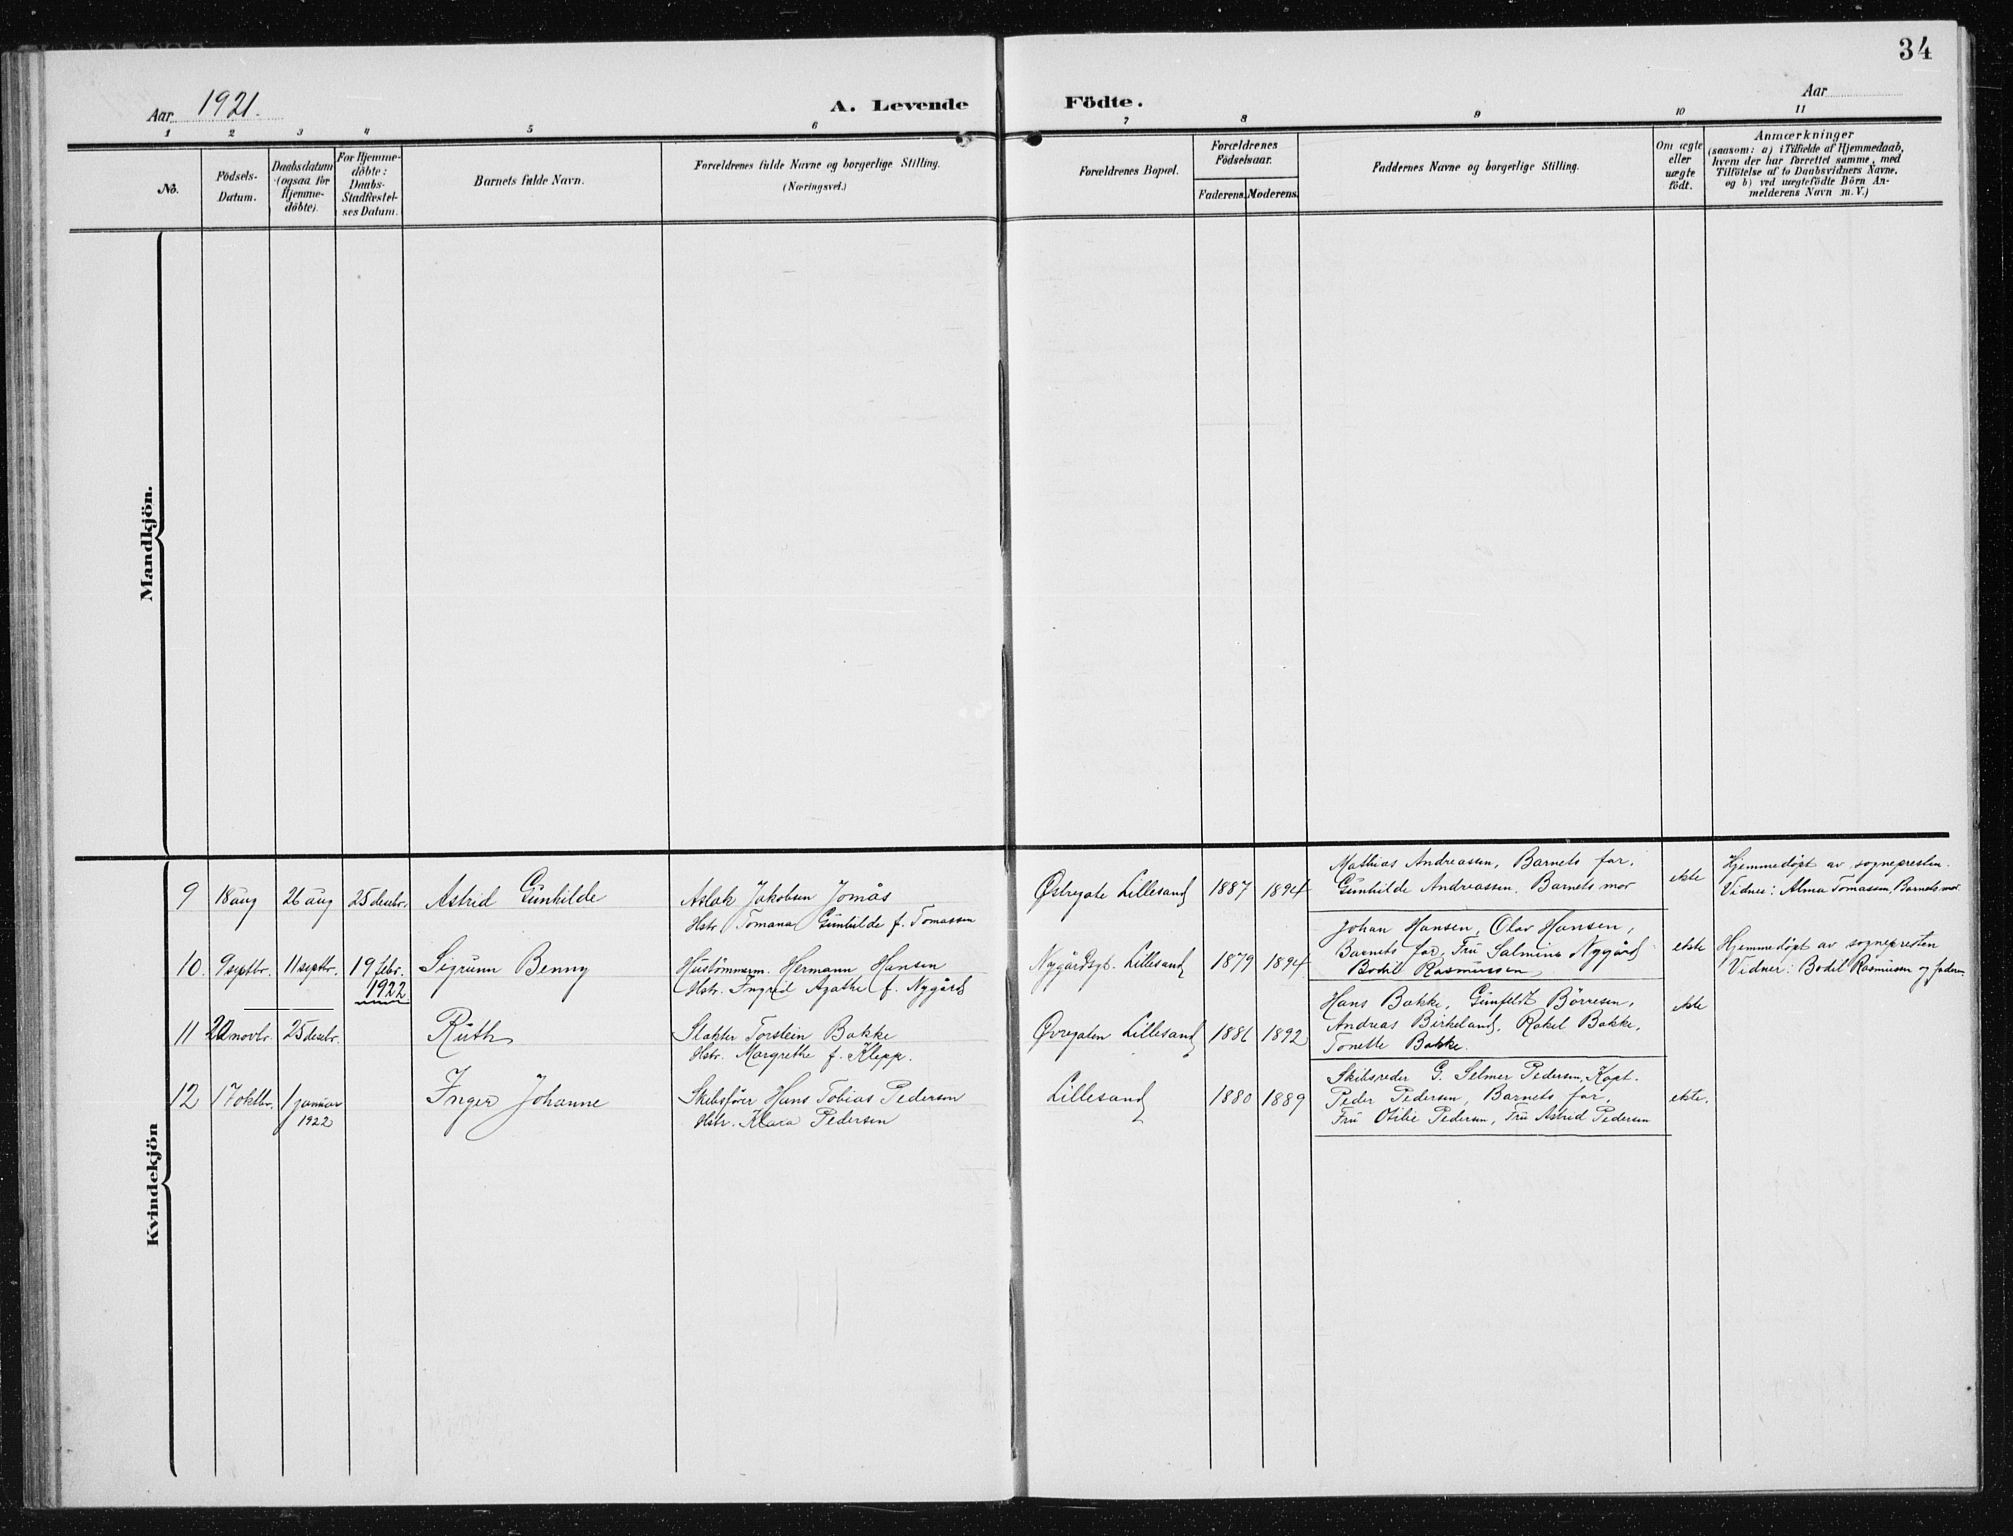 34
Aar 1921.
A. Levende Födte.
Aar
1 2 3 4 5 6 7 8 9 10 11
No.
Födsels-
Datum.
Daabsdatum
(ogsaa for
Hjemme-
döbte).
For Hjemme-
döbte:
Daabs-
Stadfæstel-
ses Datum.
Barnets fulde Navn.
Forældrenes fulde Navne og borgerlige Stilling.
(Næringsvei.)
Forældrenes Bopæl.
Forældrenes
Födselsaar.
Faderens. Moderens.
Faddernes Navne og borgerlige Stilling.
Om ægte
eller
uægte
födt.
Anmærkninger
(saasom: a) i Tilfælde af Hjemmedaab,
hvem der har forrettet samme, med
Tilföielse af to Daabsvidners Navne,
og b) ved uægtefödte Börn An-
melderens Navn m. V.)
Mandkjön.
Kvindekjön
9 18 aug 26 aug 25 desbr. Astrid Gunhilde
Aslak Jakobsen Jomås
Hstr. Tomana Gunhilde f. Tomassen
Østregate Lillesand 1887 1894
Mathias Andreassen, Barnets far,
Gunhilde Andreassen, Barnets mor
ekte
Hjemmedøpt av sognepresten.
Vidner: Alma Tomassen, Barnets mor
10. 9 septbr. 11 septbr. 19 febr.
1922
Sigrunn Benny
Hustømmerm. Hermann Hansen
Hstr. Ingrid Agathe f. Nygård
Nygårdsgt. Lillesand 1879 1894
Johan Hansen, Olav Hansen,
Barnets far, Fru Salmine Nygård
Bodil Rasmussen
ekte
Hjemmedøpt av sognepresten
Vidner: Bodil Rasmussen og faderen
11 20 novbr. 25 desbr. Ruth
Slakter Torstein Bakke
Hstr. Margrethe f. Klepp.
Øvregaten Lillesand 1886 1892
Hans Bakke, Gunfeldt Börresen,
Andreas Birkeland, Rakel Bakke,
Tonette Bakke.
ekte
12 17 oktbr. 1 januar
1922
Inger Johanne
Skibsfører Hans Tobias Pedersen
Hstr. Klara Pedersen
Lillesand 1880 1889
Skibsreder G. Selmer Pedersen, Kapt.
Peder Pedersen, Barnets far,
Fru Otilie Pedersen, Fru Astrid Pedersen
ekte.